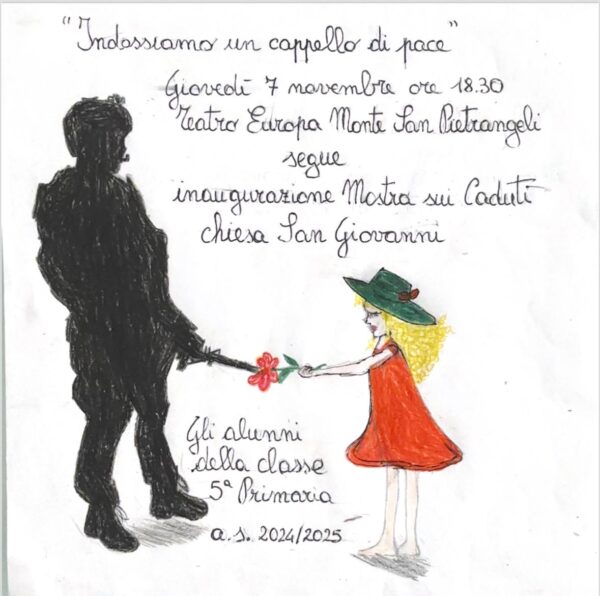 "Indossiamo un cappello di pace"
Giovedì 7 novembre ore 18.30
Teatro Europa Monte San Pietrangeli
segue
inaugurazione Mostra sui Caduti
chiesa San Giovanni
Gli alunni
della classe
5ª Primaria
a.s. 2024/2025